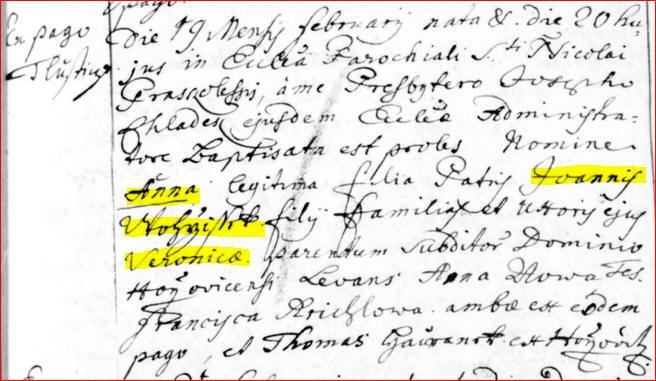 pago
Ex pago
Tlustice
Die 19 Mensis februarij nata & die 20 hu-
jus in Ecclia Parochiali S.ti Nicolai
Praskolesis, à me Presbytero Josepho
Chlades ejusdem Eccliæ Administra-
tore Baptisata est proles Nomine
Anna legitima filia Patris Joannis
filij familias et Uxoris ejus
Veronicæ parentum Subditor Dominio
Horzovicensi Levans Anna Nowa Tes.
Francisca ambæ ex eodem
pago, et Thomas ex